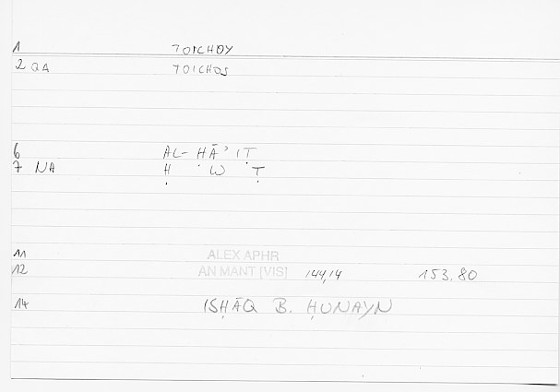 1 TOICHOY
2 QA TOICHOS
6 AL- ḤĀʾIṬ
7 NA Ḥ W Ṭ
11 ALEX APHR
12 AN MANT [VIS] 144,14 153.80
14 ISḤĀQ B. ḤUNAYN